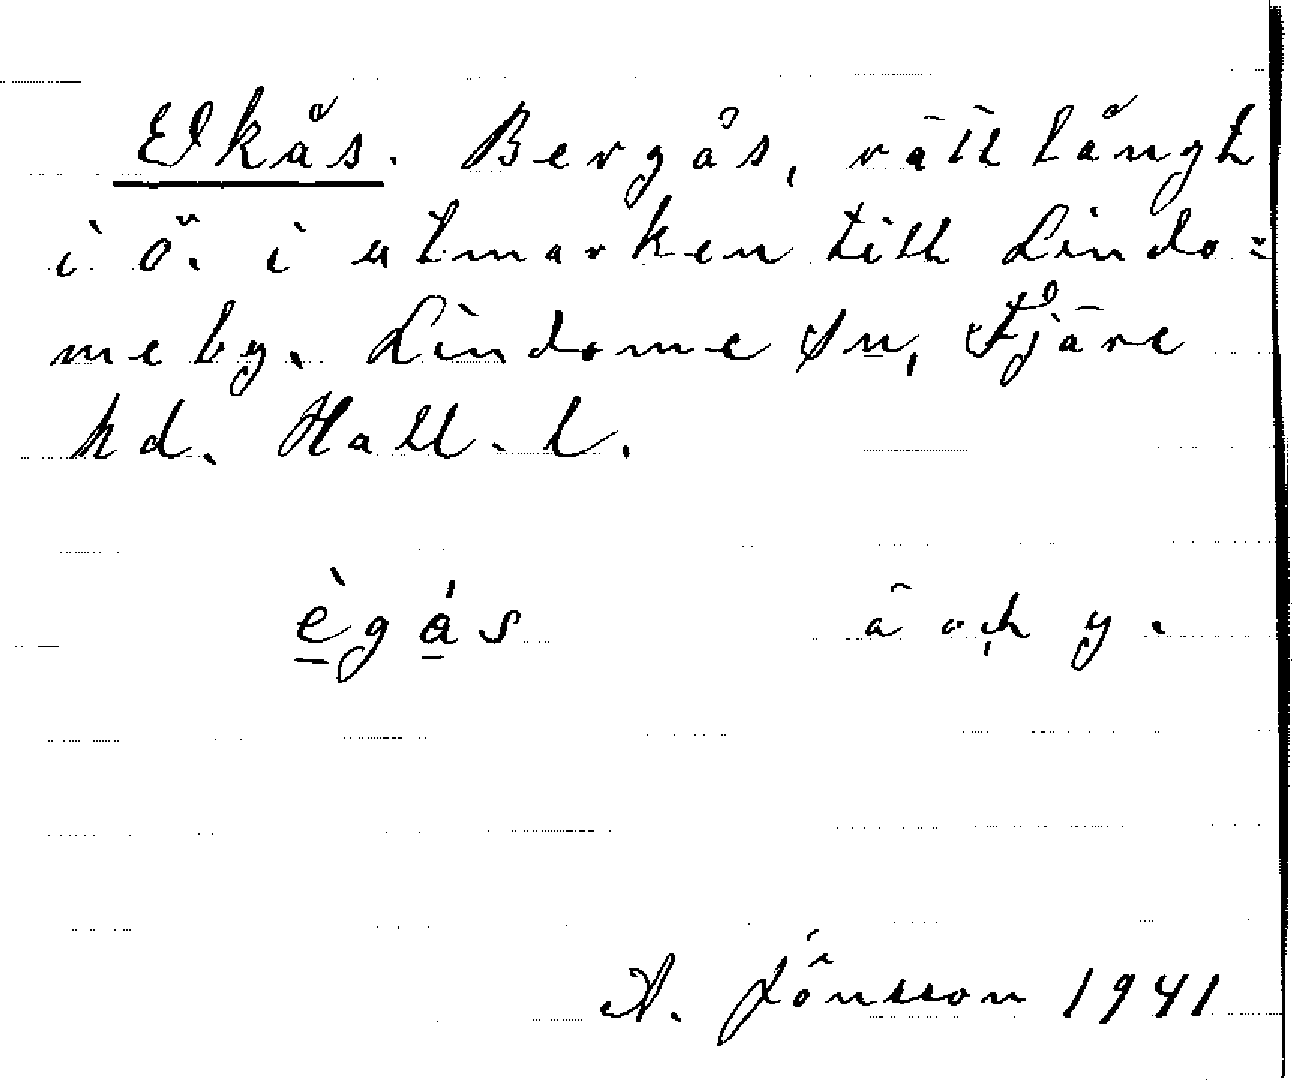 Ekås. Bergås, rätt långt
i ö. i utmarken till Lindo=
me by. Lindome sn, Fjäre
hd. Hall. l.
ègás ä och y.
A. Jönsson 1941